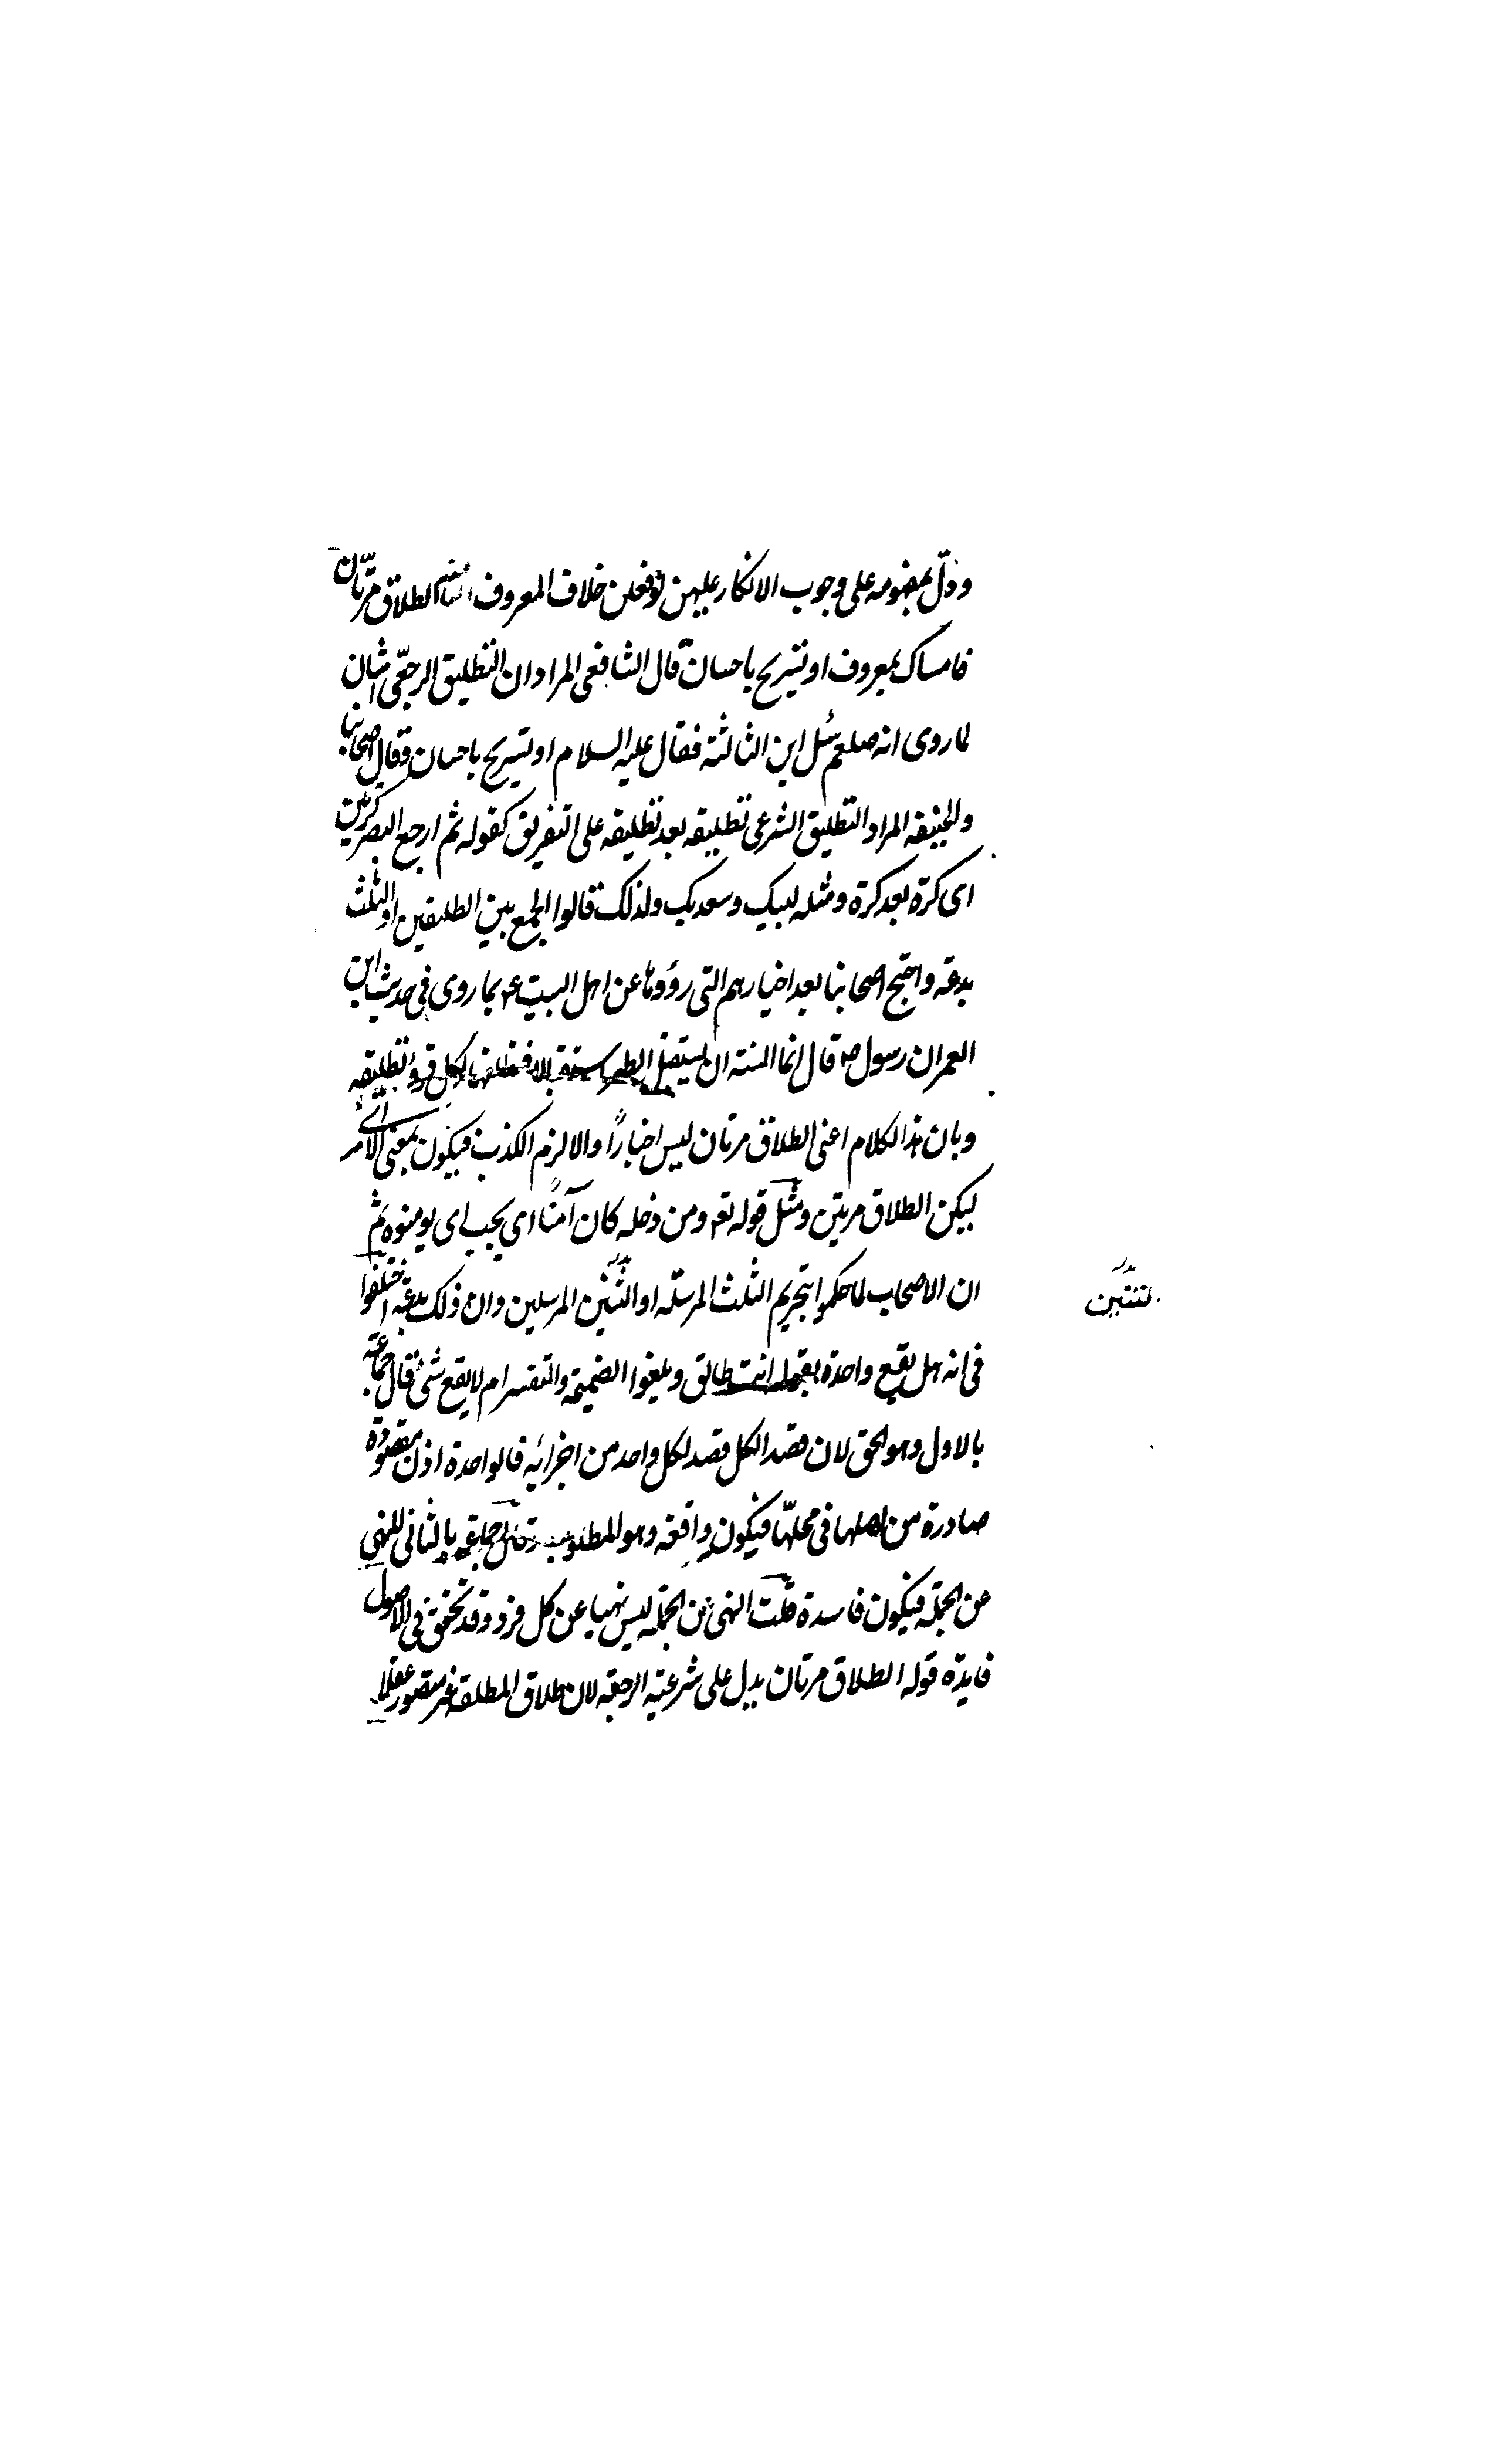 ودلّ بمفهومه على وجوب الانكار عليهن لو فعلن خلاف المعروف الطلاق مرّتان
فامساك بمعروف او تسريح باحسان قال الشافعى المراد ان التطليق الرجعّى اثنان
لما روى انه صلعم سُئل اين الثالثة فقال عليه السلام او تسريح باحسان وقال اصحابنا
والحنيفه المراد التطليق الشرعى تطليقه بعد تطليقه على التفريق كقوله ثم ارجع البصر كرتين
اى كرّة بعد كرة ومثله لبيك وسعديك ولذلك قالوا الجمع بين الطلقتين او الثلث
بدعة واحتج اصحابنا بعد اخبارهم التى رووها عن اهل البيت ع بما روى فى حديث ابن
العمر ان رسول ص قال انما السنة ان يستقبل الطهر استقبالا فتطلقها لكل قرؤ تطليقه
وبان هذا الكلام اعنى الطلاق مرتان ليس اخباراً والا لزم الكذب فيكون بمعنى الامر اى
ليكن الطلاق مرتين ومثل قوله تع ومن دخله كان آمناً اى يجب اى يومنوه ثم
ان الاصحاب لما حكموا بتحريم الثلث المرسلّه او الثنين المرسلين وان ذلك بدعة اختلفوا
لثنتين
فى انه هل يقع واحدة بقوله انت طالق ويلغوا الضميمة والتفسير ام لا يقع شئ فقال جماعة
بالاول وهو الحق لان قصد الكل قصد لكل واحد من اجزائه فالواحدة اذن مقصودة
صادرة من اهلها فى محلهّا فيكون واقعة وهو المطلوب وقال جماعة بالثانى للنهى
عن الجملة فيكون فاسدة قلت النهى عن الجملة ليس نهيا عن كل فرد وقد تحقق فى الاصول
فايدة قوله الطلاق مرتان يدل على شرعية الرجعة لان طلاق المطلقة غير متصور عقلا